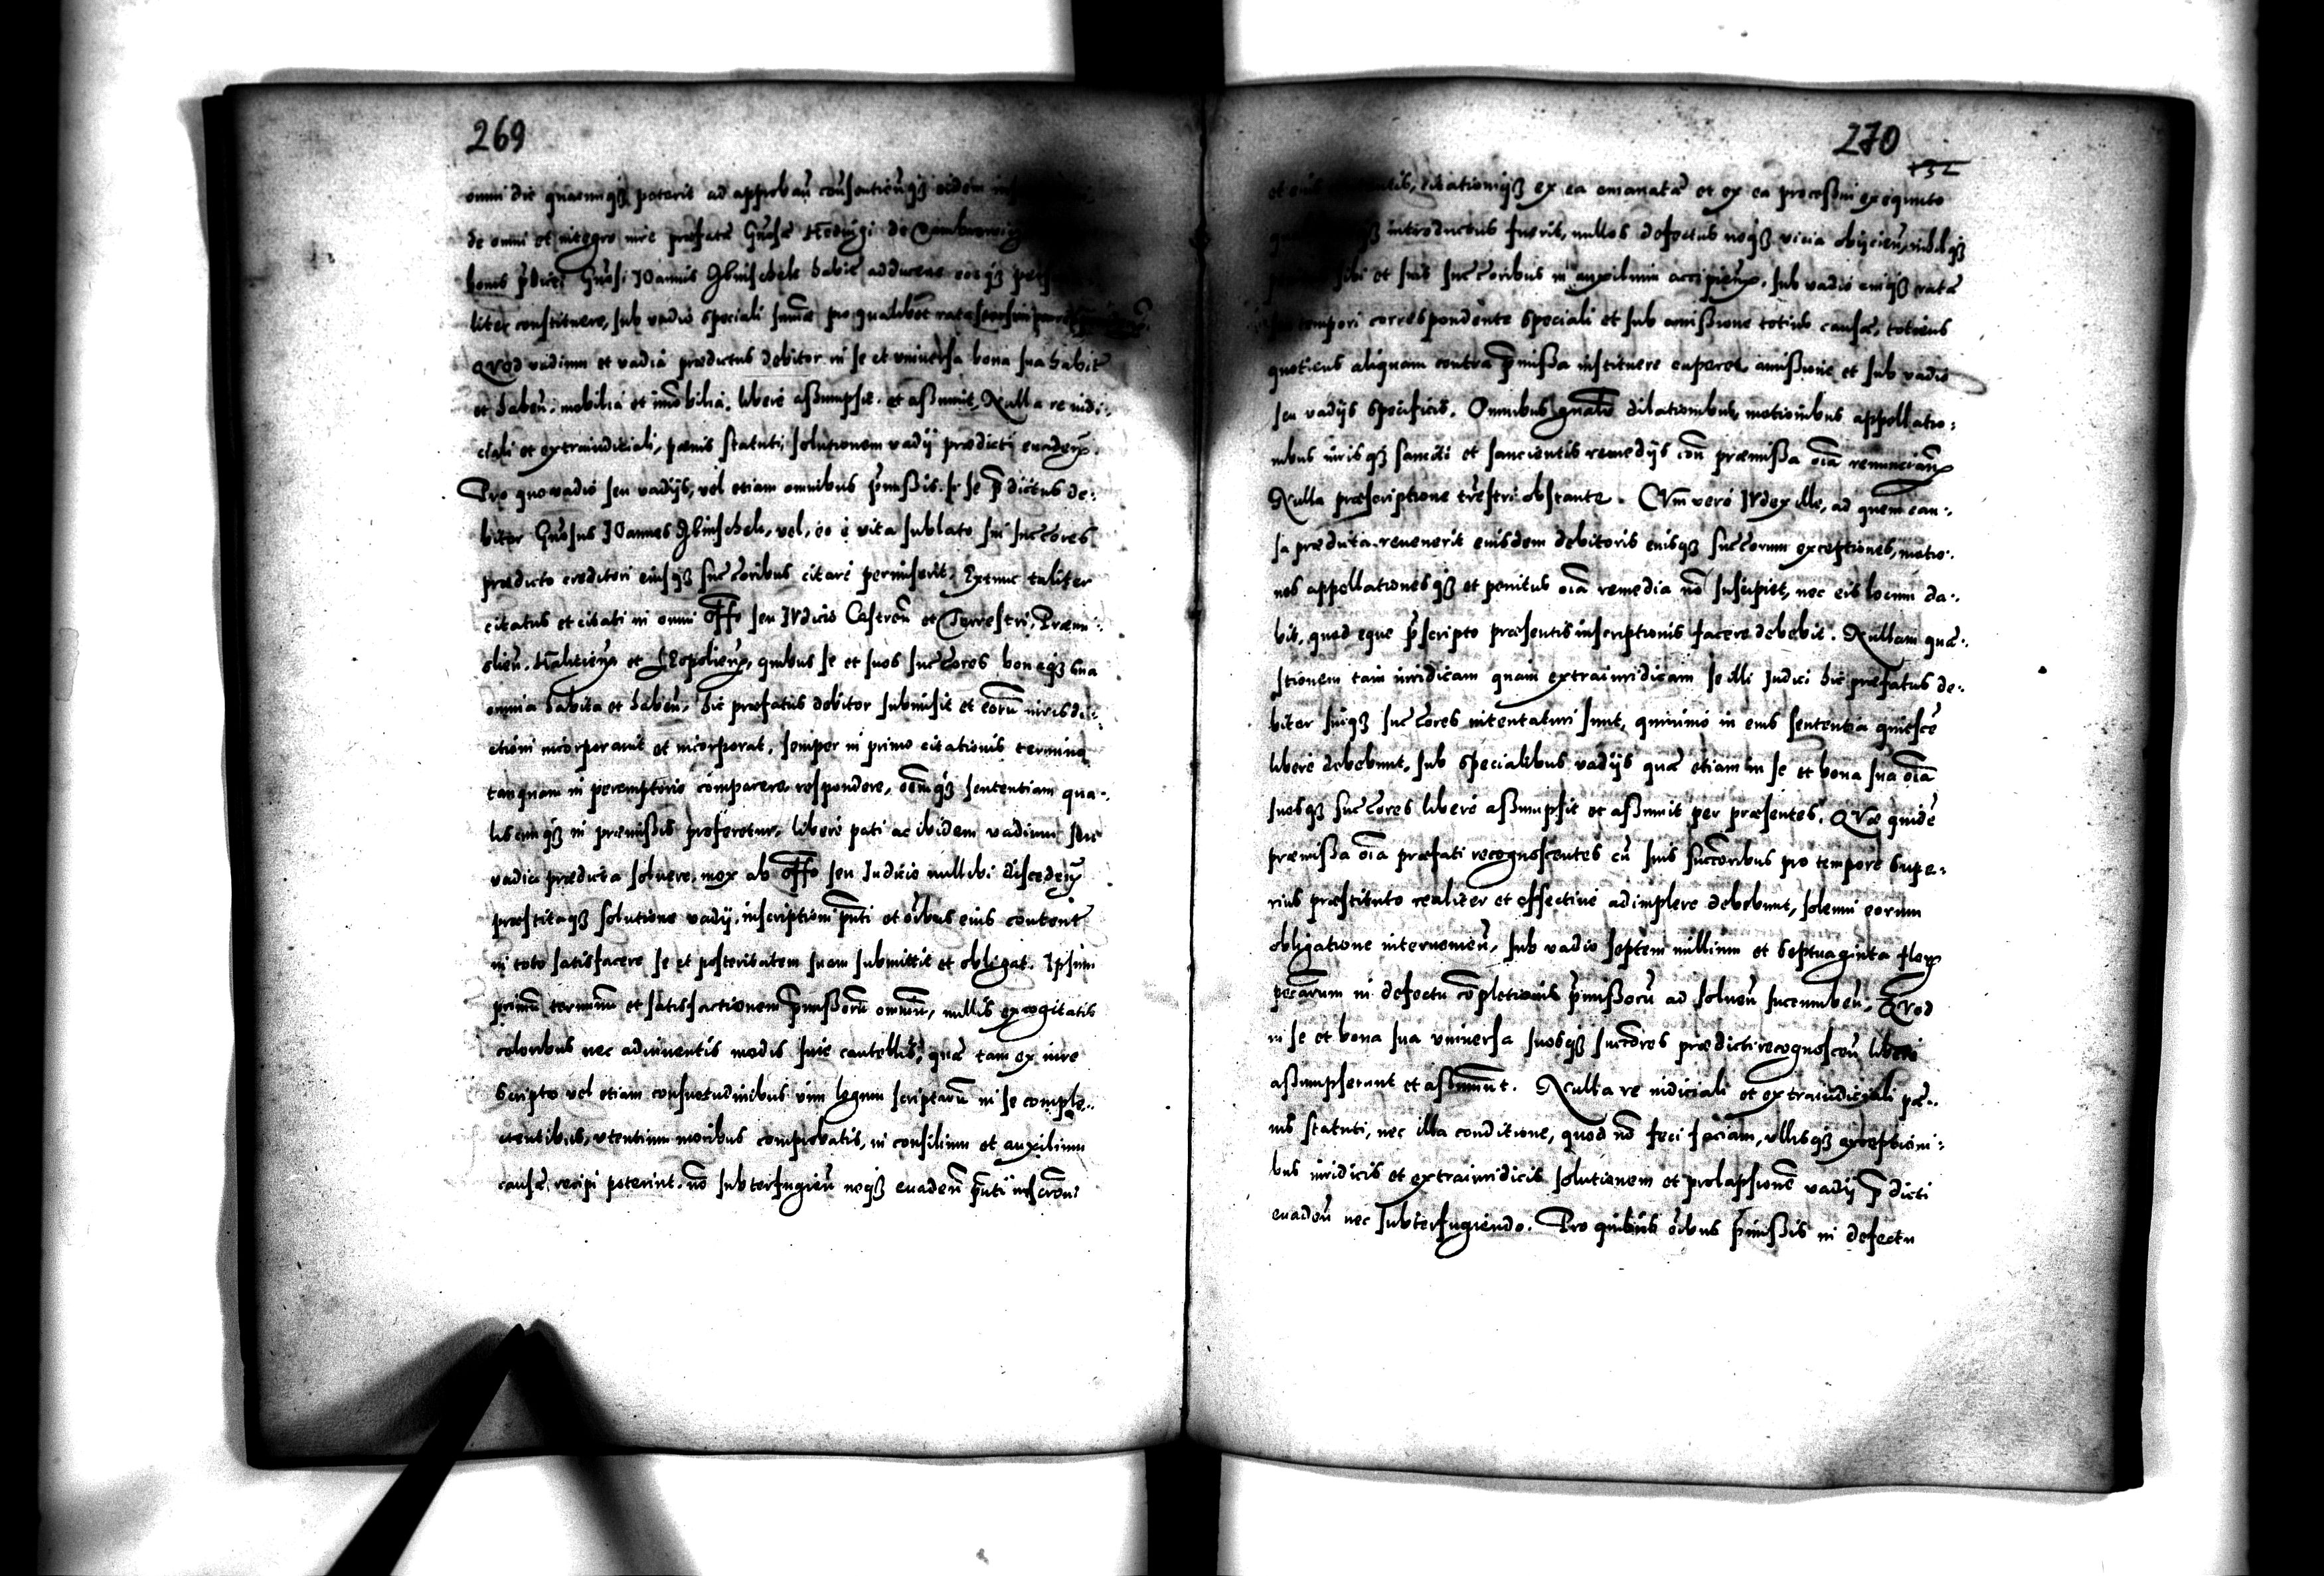 269
omni die quacunq3 poterit ad approbañ consentieñq3 eidem
de omni et integro iure præfatæ Gñosæ Hedvigi de
bonis p̃dicti Gñosi IOannis Jbinschek habitæ adducere eosq3
liter constituere, sub vadio speciali summæ pro qualibet rata
QVod vadium et vadia prædictus debitor in se et vniuersa bona sua habit
et habeñ. mobilia et im̃obilia. liberè aßumpsit. et aßumit, Nulla re iudi:
ciali et extraiudiciali, pœnis statuti, solutionem vadij prædicti euadeñ.
Pro quo vadio seu vadijs, vel etiam omnibus p̃mißis. si se p̃dictus de:
bitor Gñosus IOannes Jbinschek, vel, eo è vita sublato sui succcores
prædicto creditori eiusq3 succoribus citari permiserit. Extunc taliter
citatus et citati in omni Offo seu IVdicio Castreñ et Terrestri, Præmi:
slieñ. Halicieñ et LEopolieñ, quibus se et suos succores bonaq3 sua
omnia habita et habeñ, hic præfatus debitor submisit et eorũ iurisdi:
ctioni incorporauit et incorporat, semper in primo citationis termino
tanquam in peremptorio comparere respondere, oẽmq3 sententiam qua:
liscunq3 in præmißis proferetur, liberè pati ac ibidem vadium seu
vadia prædicta soluere. mox ab offo seu Iudicio nullibi discedeñ
præstitaq3 solutione vadij. inscriptioni p̃nti et oĩbus eius content
in toto satisfacere se et posteritatem suam submittit et obligat. Ipsum
primũ terminũ et satisfactionem p̃mißorũ omniũ, nullis excogitatis
coloribus nec adinuentis modis siue cautellis, quæ tam ex iure
scripto vel etiam consuetudinibus vim legum scriptarũ in se comple:
ctentibus, vtentium moribus comprobatis, in consilium et auxilium
causæ, recipi poterint. nõ subterfugieñ neq3 euadeñ p̃nti inscrõni
270
152
et eius citationiq3 ex ea emanatæ et ex ea processui exequuto
introductus fuerit, nullos defectus neq3 vicia obijcieñ, nihilq3
sibi et suis succoribus in auxilium accipieñ. sub vadio cuiq3 ratæ
tempori correspondente speciali et sub amißione totius causæ, toties
quoties aliquam contra p̃mißa instituere cuperet amißione et sub vadio
seu vadijs specificis. Omnibus gñalr dilationibus motionibus appellatio:
nibus iurisq3 sanciti et sancientis remedijs coñ præmißa oĩa renunciañ
Nulla præscriptione trẽstri obstante. CVm verò IVdex ille, ad quem cau:
sa prædicta reuenerit eiusdem debitoris eiusq3 succorum exceptiones, motio:
nes appellationesq3 et penitus oĩa remedia nõ suscipiet, nec eis locum da:
bit, quod eque p̃scripto præsentis inscriptionis facere debebit. Nullam quæ:
stionem tam iuridicam quam extraiuridicam se illi Iudici hic præfatus de:
bitor suiq3 succores intentaturi sunt, quinimo in eius sententia quiesce
liberè debebunt. sub specialibus vadijs quæ etiam in se et bona sua oĩa
suosq3 succores liberè aßumpsit et aßumit per præsentes. QVæ quidẽ
præmißa oĩa præfati recognoscentes cũ suis succoribus pro tempore supe:
rius præstituto realiter et effectiuè adimplere debebunt, solenni eorum
obligatione interuenieñ, sub vadio septem millium et septuaginta floŕ
pecarum in defectu cõpletionis p̃mißorũ ad solueñ succumbeñ. QVod
in se et bona sua vniuersa suosq3 succores prædicti recognosceñ liberè
aßumpserunt et aßumunt. Nulla re iudiciali et extraiudiciali pœ:
nis statuti, nec illa conditione, quod nõ feci faciam, vllisq3 exceptioni:
bus iuridicis et extraiuridicis solutionem et prolapsionẽ vadij p̃dicti
euadeñ nec subterfugiendo. Pro quibus oĩbus p̃mißis in defectu